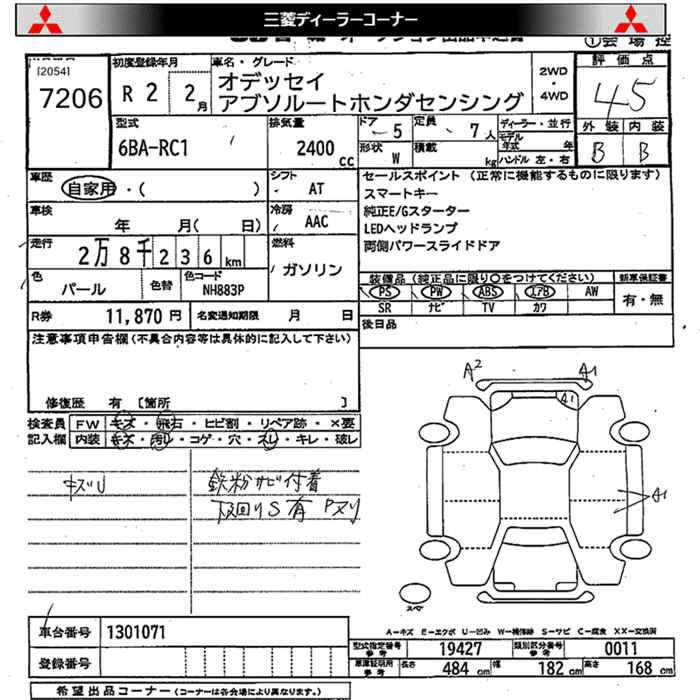 三菱ディーラーコーナー
①会場控
[2054]
7206
初度登録年月
R 2 2月
車名・グレード
オデッセイ
アブソルートホンダセンシング
2WD
・
4WD
評価点
4.5
外装 内装
B B
型式
6BA-RC1
排気量
2400 cc
ドア
5
定員
7人
形状
W
積載
kg
ディーラー・並行
モデル年式 年
ハンドル 左・右
車歴
自家用・( )
シフト
AT
車検
年 月( 日)
冷房
AAC
走行
2万8千236km
燃料
ガソリン
色
パール
色替
色コード
NH883P
セールスポイント(正常に機能するものに限ります)
スマートキー
純正E/Gスターター
LEDヘッドランプ
両側パワースライドドア
装備品(純正品に限り○をつけてください)
新車保証書
PS PW ABS エアB AW
SR ナビ TV カワ
有・無
後日品
R券 11,870 円
名変通知期限 月 日
注意事項申告欄(不具合内容等は具体的に記入して下さい)
修復歴 有 [箇所 ]
検査員記入欄
FW キズ・飛石・ヒビ割・リペア跡・×要
内装 キズ・汚れ・コゲ・穴・スレ・キレ・破レ
キズU
鉄粉サビ付着
下回りS有 Pヌリ
A2
A1
A1
A1
スペア
A-キズ E-エクボ U-凹み W-補修跡 S-サビ C-腐食 XX-交換済
車台番号 1301071
登録番号
型式指定番号 参考 19427
類別区分番号 参考 0011
車庫証明用 参考 長さ 484 cm 幅 182 cm 高さ 168 cm
希望出品コーナー(コーナーは各会場により異なります。)